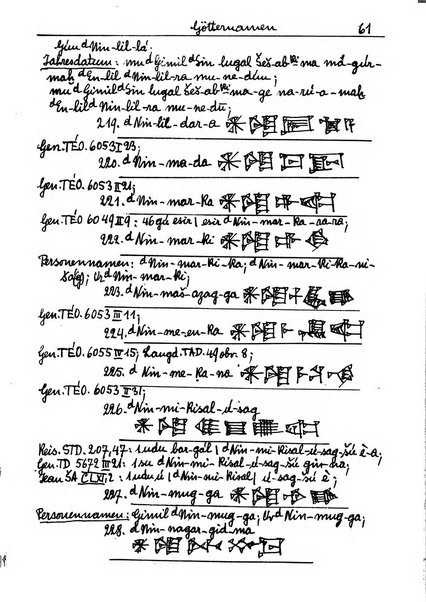 Götternamen 61
Gim dNin-lil-lá;
Jahresdatum: mu dGimil dSin lugal Šeš-abki ma má-gur-
maḫ dEn-lil dNin-lil-ra mu-ne-dím;
mu dGimil dSin lugal Šeš-abki ma-ge na-rú-a-maḫ
dEn-lil dNin-lil-ra mu-ne-dū;
219. dNin-lil-dar-a
Gen. TÉO. 6053 I 23;
220. dNin-ma-da
Gen. TÉO. 6053 II 21;
221. dNin-mar-ka
Gen. TÉO 6049 II 9: 46 gú esir | esir dNin-mar-ka-ra-ra;
222. dNin-mar-ki
Personennamen: dNin-mar-ki-ka; dNin-mar-ki-ka-ni-
; Ur dNin-mar-ki;
223. dNin-maš-azag-ga
Gen. TÉO. 6053 III 11;
224. dNin-me-en-ka
Gen. TÉO. 6055 IV 15; Langd. TAD. 49 obr. 8;
225. dNin-me-ka-na
Gen. TÉO. 6053 II 31;
226. dNin-mi-kisal-ú-sag
Reis. STD. 207,47: 1 udu bar-gál | dNin-mi-kisal-ú-sag-šú è-a;
Gen. TD 5672 III 21: 1 su dNin-mi-kisal-ú-sag-šú gin-na;
Jean. ŠA CLXI,2: 1 udu ú | dNin-mi-kisal | ú-sag-šú è;
227. dNin-mug-ga
Personennamen: Gimil dNin-mug-ga; Ur dNin-mug-ga;
228. dNin-nagar-gid-ma